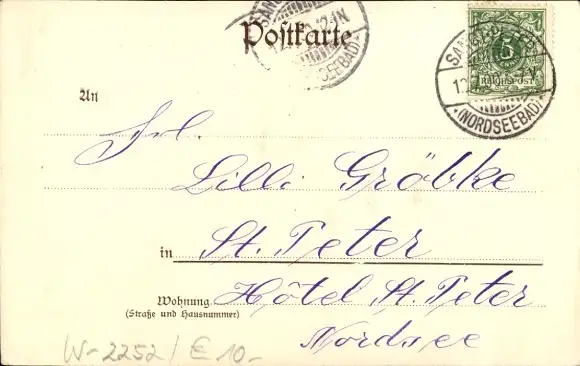 Postkarte
SANCT PETER
(NORDSEEBAD)
5
REICHSPOST
An
Frl.
Lilli Gröbke
in St. Peter
Wohnung Hôtel St. Peter
(Straße und Hausnummer)
Nordsee
W-2252/€ 10.-